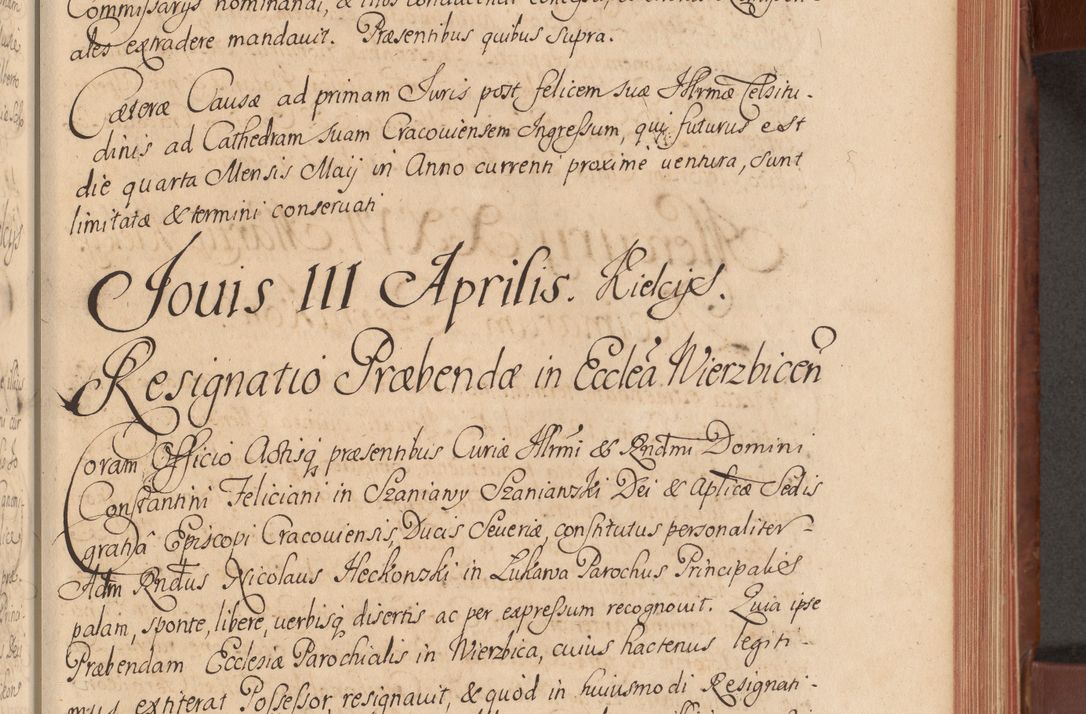 Commissarys nominandi, & illos conducendi
ales extradere mandavit. Præsentibus quibus supra.
Cæteræ Causæ ad primam Iuris post felicem suæ Illrmæ Celsitu-
dinis ad Cathedram suam Cracoviensem Ingressum, qui futurus est
die quarta Mensis Maij in Anno currenti proximè ventura, sunt
limitatæ & termini conservati
Jouis III Aprilis. Kielcijs.
Resignatio Præbendæ in Ecclea Wierzbicen
Coram Officio Actisq præsentibus Curiæ Illrmi & Rndmi Domini
Constantini Feliciani in Szaniawy Szaniawski Dei & Aplicæ Sedis
gratiâ Episcopi Cracoviensis, Ducis Severiæ, constitutus personaliter
Adm Rndus Nicolaus Heckowski in Lukawa Parochus Principalis
palam, sponte, libere, verbisq disertis ac per expressum recognovit. Quia ipse
Præbendam Ecclesiæ Parochialis in Wierzbica, cuius hactenus legiti-
mus extiterat Possessor, resignavit, & quòd in huiusmodi Resignati-